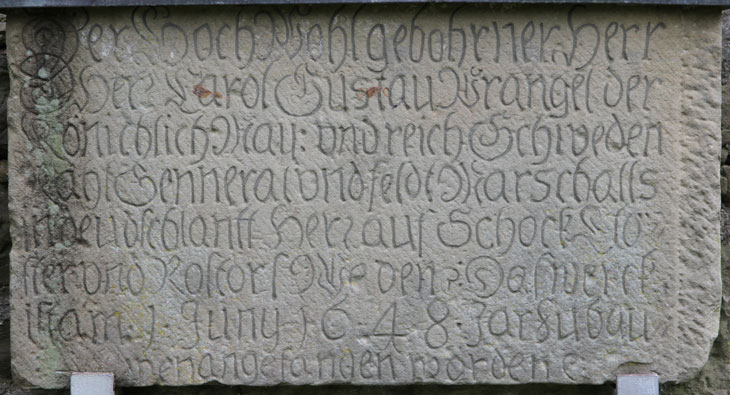 Der Hoch Wohl gebohrner Herr
Her Carol Gustau Wrangel der
Könighlich May: vnd reich Schweden
raht Genneral vnd feldt Marschalls
in deudschlantt Her auf Schock Clo¨
ster vnd Rostorf Das werck
ist am 1 Juny 1648 Jar zu bau
wenangefangen worden